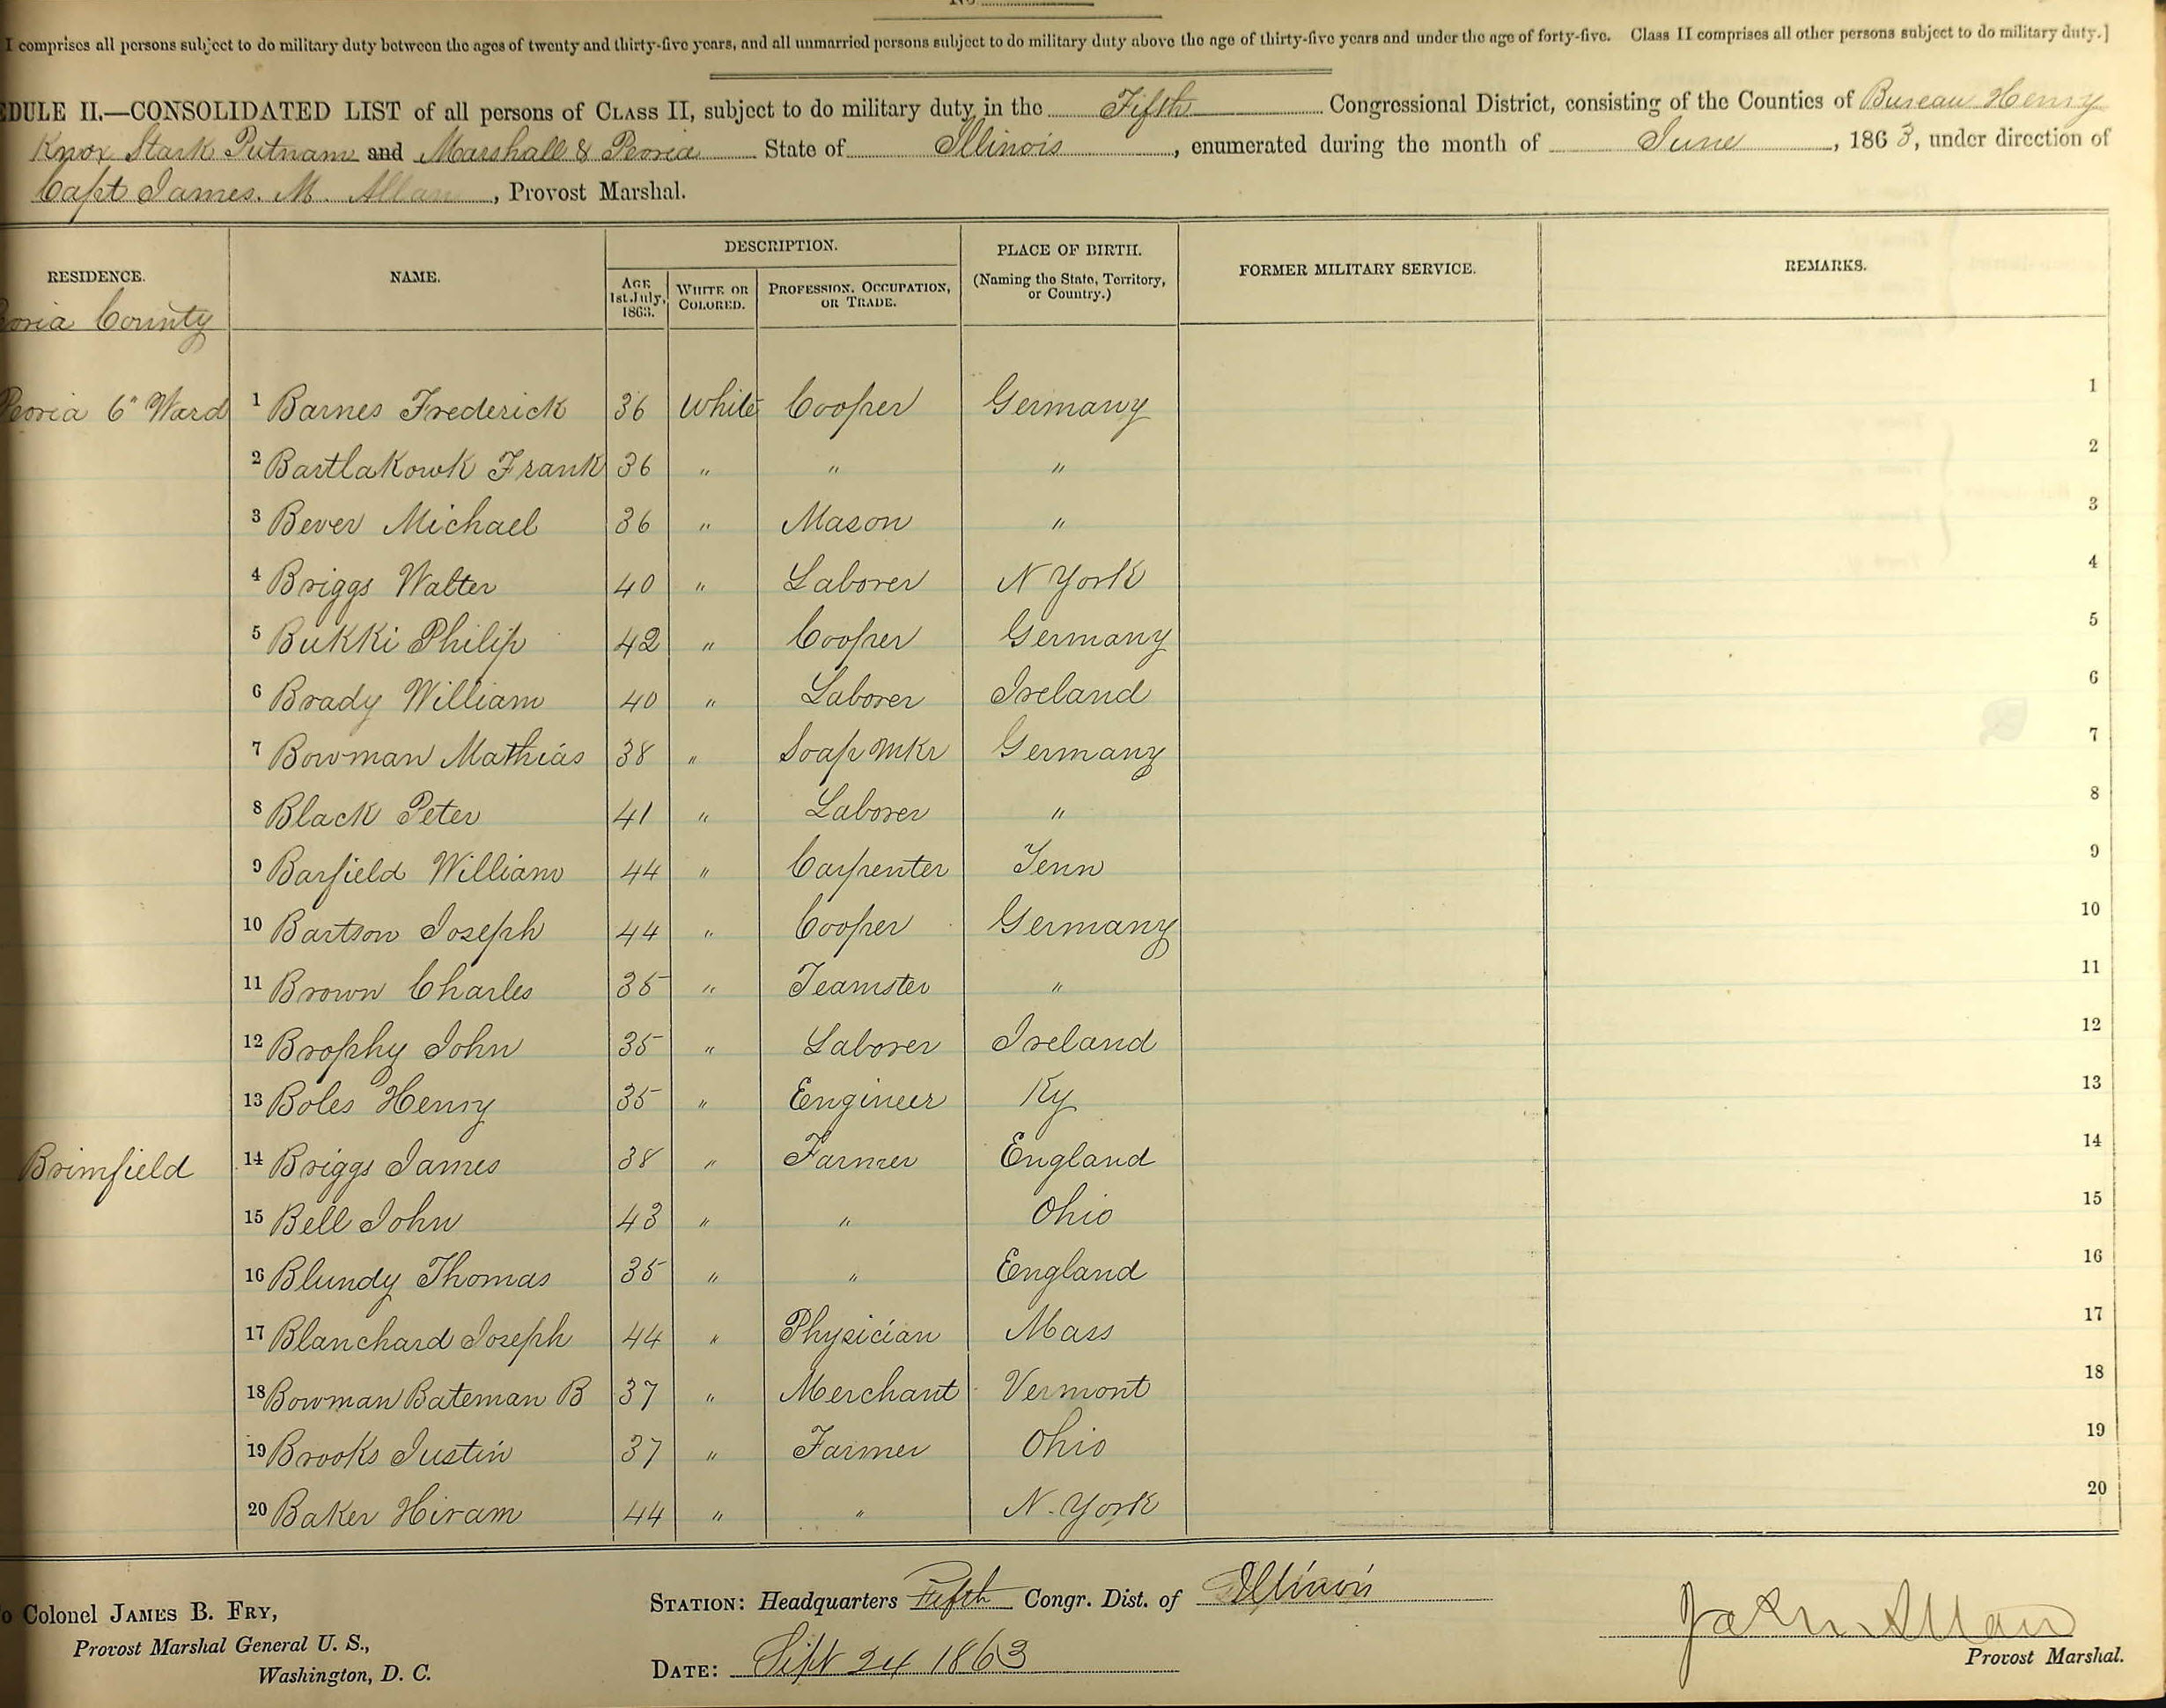 No
I comprises all persons subject to do military duty between the ages of twenty and thirty-five years, and all unmarried persons subject to do military duty above the age of thirty-five years and under the age of forty-five. Class II comprises all other persons subject to do military duty.]
EDULE II.—CONSOLIDATED LIST of all persons of CLASS II, subject to do military duty in the Fifth Congressional District, consisting of the Counties of Bureau Henry
Knox Stark Putnam and Marshall & Peoria State of Illinois, enumerated during the month of June, 1863, under direction of
Capt James. M. Allan, Provost Marshal.
RESIDENCE. NAME. DESCRIPTION. PLACE OF BIRTH. (Naming the State, Territory, or Country.) FORMER MILITARY SERVICE. REMARKS.
AGE 1st July, 1863. WHITE OR COLORED. PROFESSION, OCCUPATION, OR TRADE.
eoria County
Peoria 6" Ward 1 Barnes Frederick 36 White Cooper Germany 1
2 Bartlakowk Frank 36 " " " 2
3 Bever Michael 36 " Mason " 3
4 Briggs Walter 40 " Laborer N York 4
5 Bukki Philip 42 " Cooper Germany 5
6 Brady William 40 " Laborer Ireland 6
7 Bowman Mathias 38 " Soap Mkr Germany 7
8 Black Peter 41 " Laborer " 8
9 Barfield William 44 " Carpenter Tenn 9
10 Bartson Joseph 44 " Cooper Germany 10
11 Brown Charles 35 " Teamster " 11
12 Brophy John 35 " Laborer Ireland 12
13 Boles Henry 35 " Engineer Ky 13
Brimfield 14 Briggs James 38 " Farmer England 14
15 Bell John 43 " " Ohio 15
16 Blundy Thomas 35 " " England 16
17 Blanchard Joseph 44 " Physician Mass 17
18 Bowman Bateman B 37 " Merchant Vermont 18
19 Brooks Justin 37 " Farmer Ohio 19
20 Baker Hiram 44 " " N. York 20
o Colonel JAMES B. FRY,
Provost Marshal General U. S.,
Washington, D. C.
STATION: Headquarters Fifth Congr. Dist. of Illinois
DATE: Sept 24 1863
Jas M Allan
Provost Marshal.